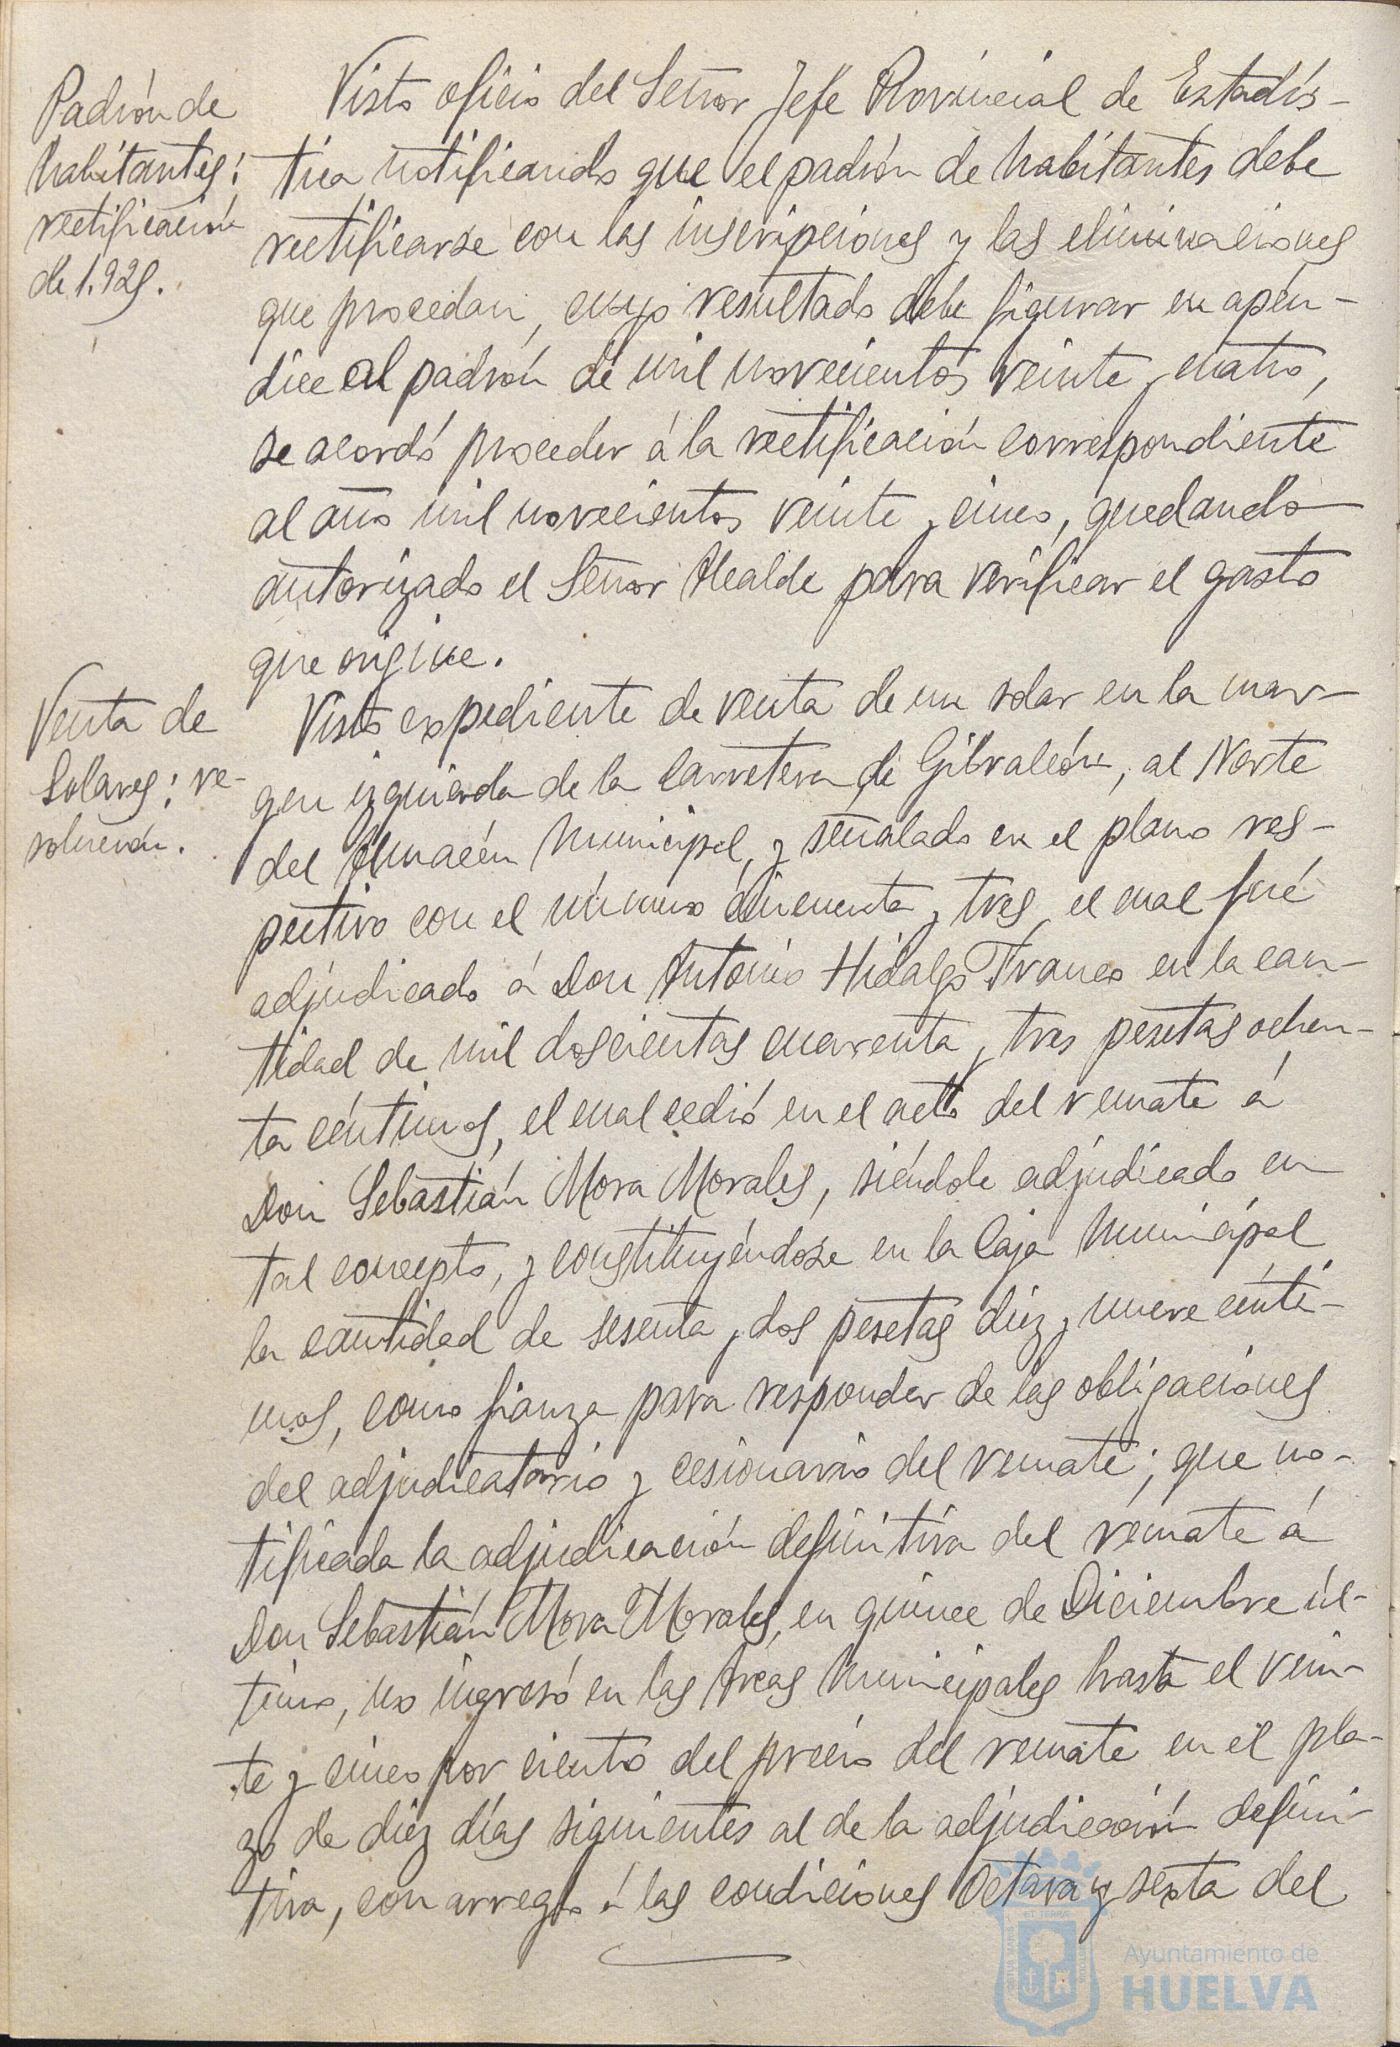 Padrón de
habitantes;
rectificación
de 1.925.
Visto oficio del Señor Jefe Provincial de Estadís-
tica notificando que el padrón de habitantes debe
rectificarse con las inscripciones y las eliminaciones
que procedan, cuyo resultado debe figurar en apén-
dice al padrón de mil novecientos veinte y cuatro,
se acordó proceder á la rectificación correspondiente
al año mil novecientos veinte y cinco, quedando
autorizado el Señor Alcalde para verificar el gasto
que origine.
Venta de
Solares; re-
solución.
Visto expediente de venta de un solar en la mar-
gen izquierda de la Carretera de Gibraleón, al Norte
del Almacén Municipal, y señalado en el plano res-
pectivo con el número cincuenta y tres, el cual fué
adjudicado á Don Antonio Hidalgo Franco en la can-
tidad de mil doscientas cuarenta y tres pesetas ochen-
ta céntimos, el cual cedió en el acto del remate á
Don Sebastián Mora Morales, siéndole adjudicado en
tal concepto, y constituyéndose en la Caja Municipal
la cantidad de sesenta y dos pesetas diez y nueve cénti-
mos, como fianza para responder de las obligaciones
del adjudicatario y cesionario del remate; que no-
tificada la adjudicación definitiva del remate á
Don Sebastián Mora Morales, en quince de Diciembre úl-
timo, no ingresó en las Arcas Municipales hasta el vein-
te y cinco por ciento del precio del remate en el pla-
zo de diez días siguientes al de la adjudicación defini-
tiva, con arreglo á las condiciones Octava y sexta del
Ayuntamiento de
HUELVA